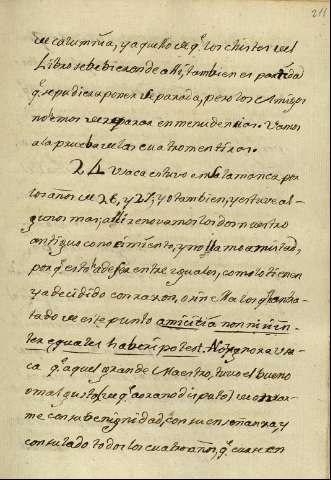 211
de calumnia, y aquello de q.e los chistes del
Libro se bebieron de allo, tambien es partida
q.e se pudiera poner de parada, pero los Amigos
no demos reparar en menudencias. Vamos
a la prueba de las cuatro mentiras.
24 Vaca estuvo en Salamanca por
los años de 26, y 27, yo tambien, y estuve al-
gunos mas; alli renovamos los dos nuestro
antiguo conocimiento, y no llamo amistad,
por q.e esta ha de ser entre iguales, como lo tienen
ya decidido con razon, o sin ella los q.e han tra-
tado de este punto amicitia non nisi in-
ter equales haberi potest. No ignora Va-
ca q.e aquel grande Maestro, tuvo el bueno
o mal gusto de q.e
me con su benignidad, con su enseñanza, y
con su lado todos los cuatro años, q.e cursé en